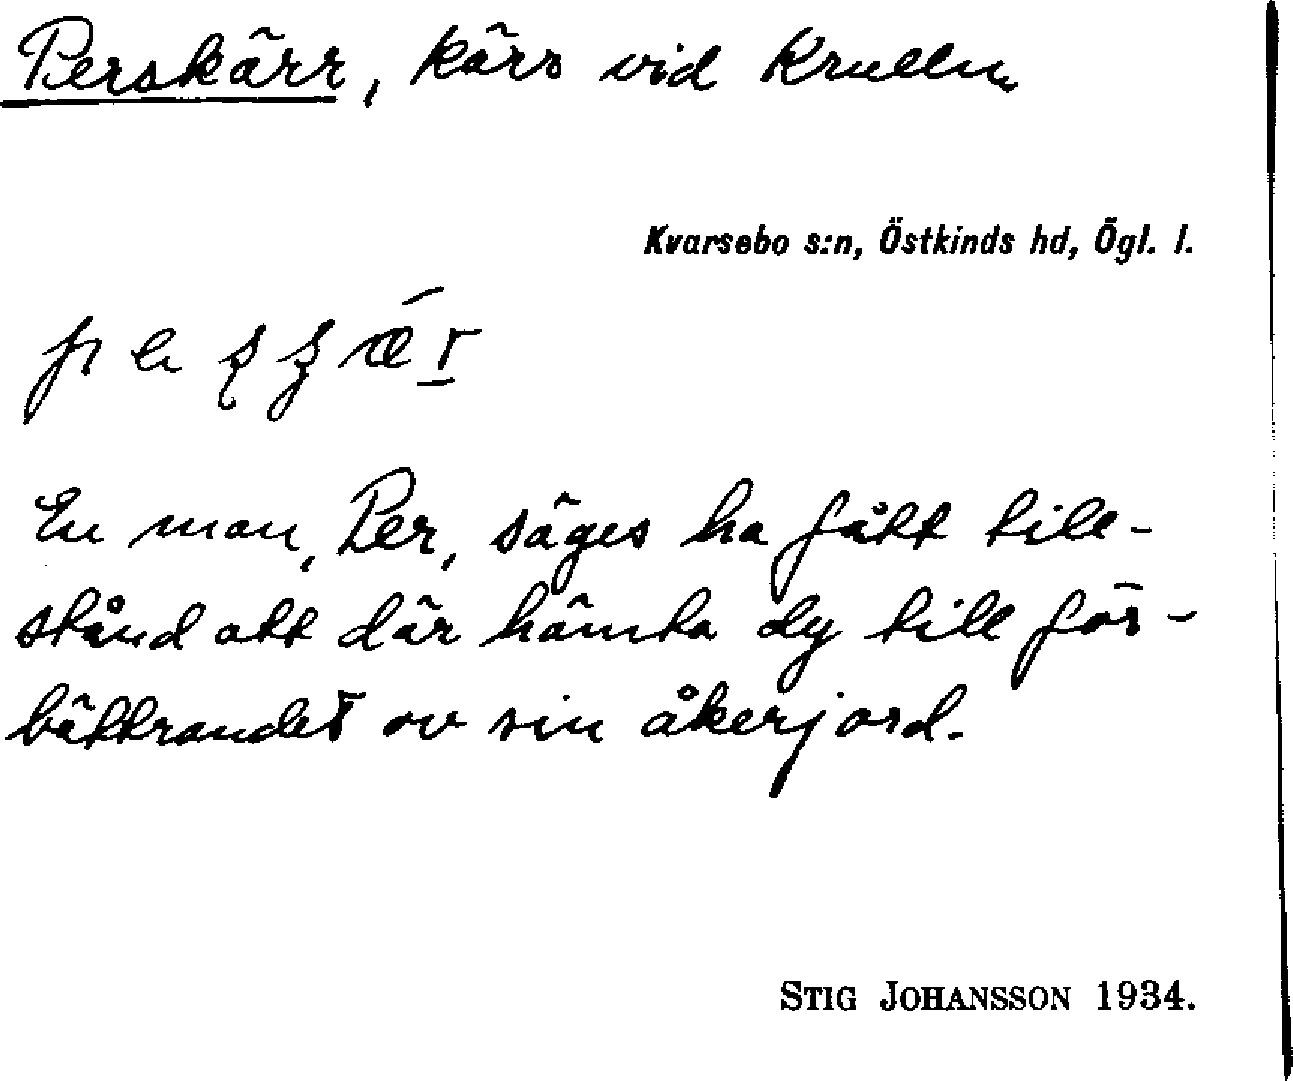 Perskärr, kärr vid Krullen
Kvarsebo s:n, Östkinds hd, Ögl. l.
En man, Per, säges ha fått till-
stånd att där hämta dy till för-
bättrandet av sin åkerjord.
STIG JOHANSSON 1934.